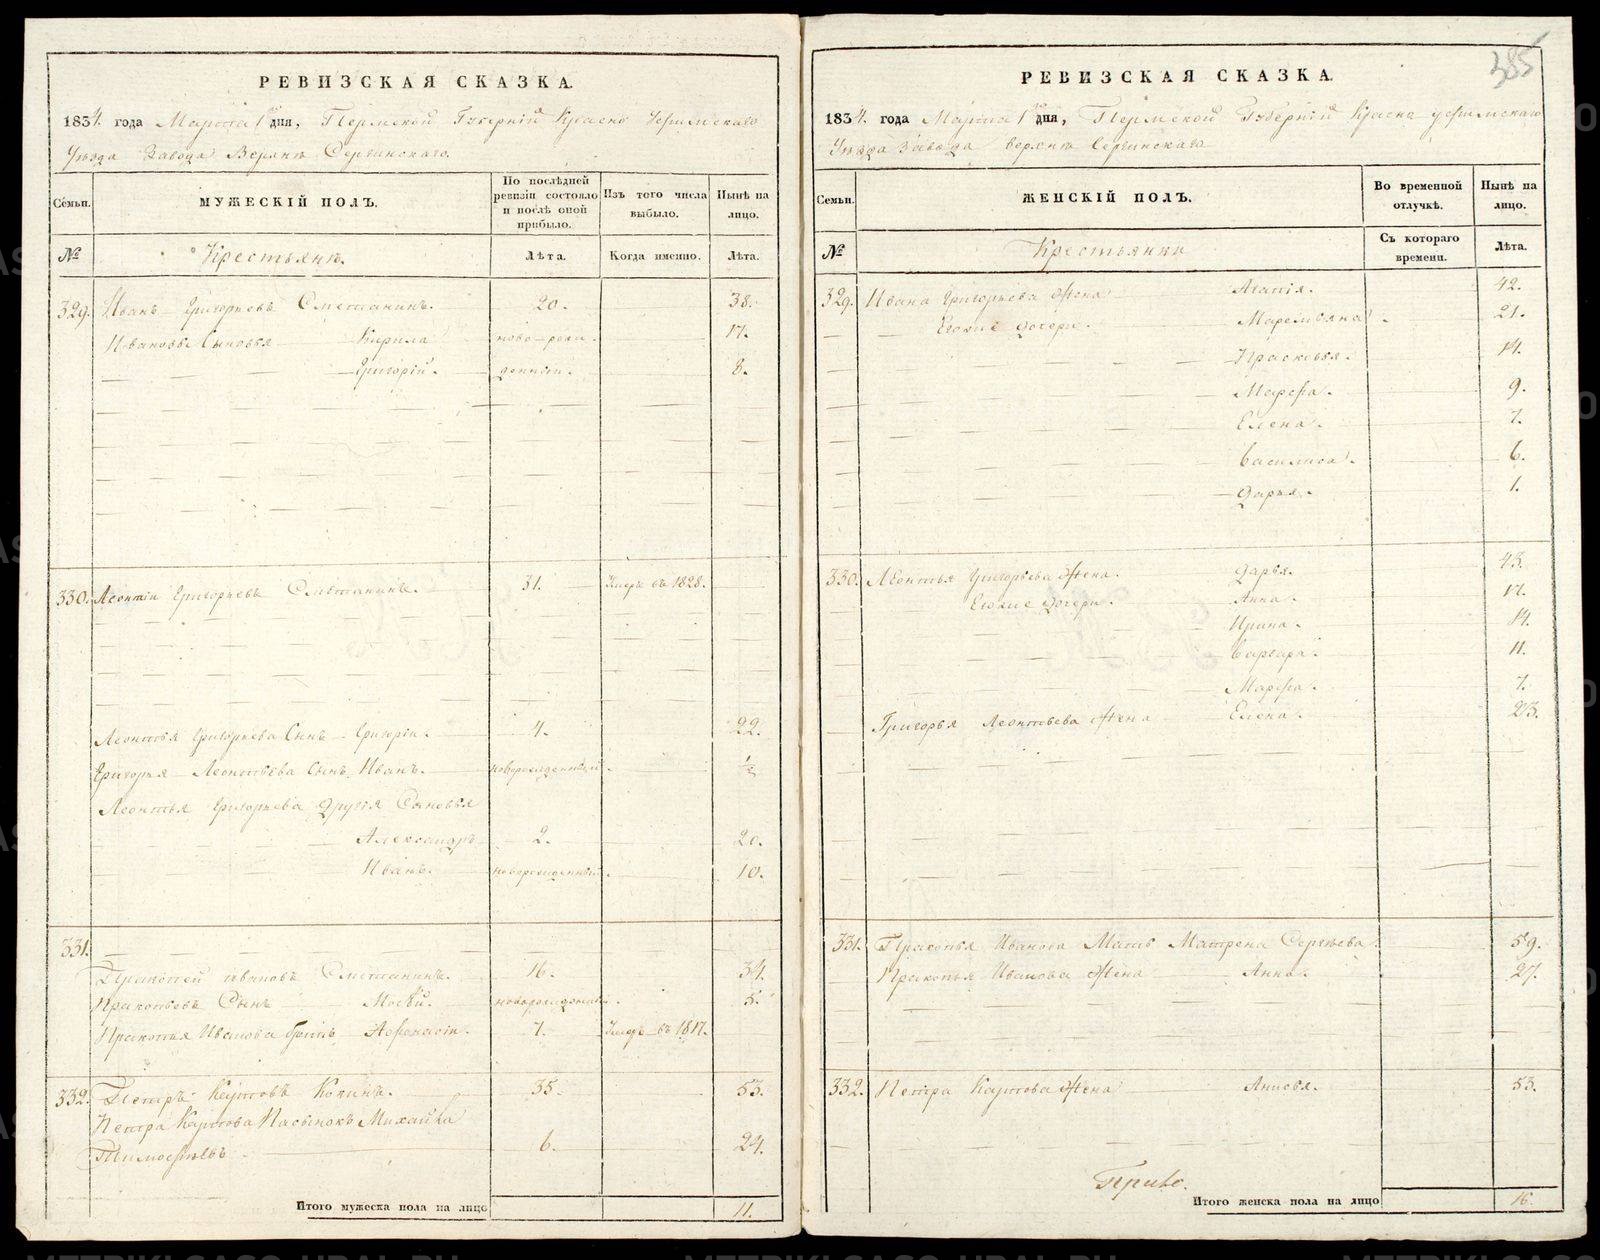 РЕВИЗСКАЯ СКАЗКА.
1834. года Марта 1 дня, Пермской Губерніи Красно Уфимскаго
Уѣзда Завода Верхнѣ Сергинскаго.
Семьи.
МУЖЕСКІЙ ПОЛЪ.
По послѣдней ревизіи состояло и послѣ оной прибыло.
Изъ того числа выбыло.
Нынѣ на лицо.
№
Крестьянъ.
Лѣта.
Когда именно.
Лѣта.
329. Иванъ Григорьевъ Сметанинъ. 20. 38.
Ивановы Сыновья Кирила ново-рож- 17.
Григорій. денніи. 8.
330. Леонтіи Григорьевъ Сметанинъ. 31. Умеръ въ 1828.
Леонтья Григорьева Сынъ Григоріи. 4. 22.
Григорья Леонтьева Сынъ Иванъ. новорожденный. ½
Леонтья Григорьева Другія Сыновья
Александръ 2. 20.
Иванъ. новорожденный. 10.
331.
Прокопей Ивановъ Сметанинъ. 16. 34.
Прокопьевъ Сынъ новорожденный. 5.
Прокопья Иванова Братъ Афонасіи. 7. Умеръ въ 1817.
332. Петръ Карповъ 35. 53.
Петра Карпова Пасынокъ Михайла
Тимофѣевъ. 6. 24.
Итого мужеска пола на лицо 11.
385
РЕВИЗСКАЯ СКАЗКА.
1834. года Марта 1 дня, Пермской Губерніи Красно уфимскаго
Уѣзда завода верхнѣ Сергинскаго
Семьи.
ЖЕНСКІЙ ПОЛЪ.
Во временной отлучкѣ.
Нынѣ на лицо.
№
Крестьянки
Съ котораго времени.
Лѣта.
329. Ивана Григорьева Жена Агапія. 42.
Егожие дочери. Маремьяна. 21.
Прасковья. 14.
9.
Елена. 7.
Василиса. 6.
Дарья. 1.
330. Леонтья Григорьева Жена. Дарья. 43.
Егожие дочери. Анна. 17.
Ирина. 14.
Варвара. 11.
Марфа. 7.
Григорья Леонтьева Жена Елена. 23.
331. Прокопья Иванова Мать Матрена Сергѣева. 59.
Прокопья Иванова Жена Анна. 27.
332. Петра Карпова Жена Анисья. 53.
Итого женска пола на лицо 16.